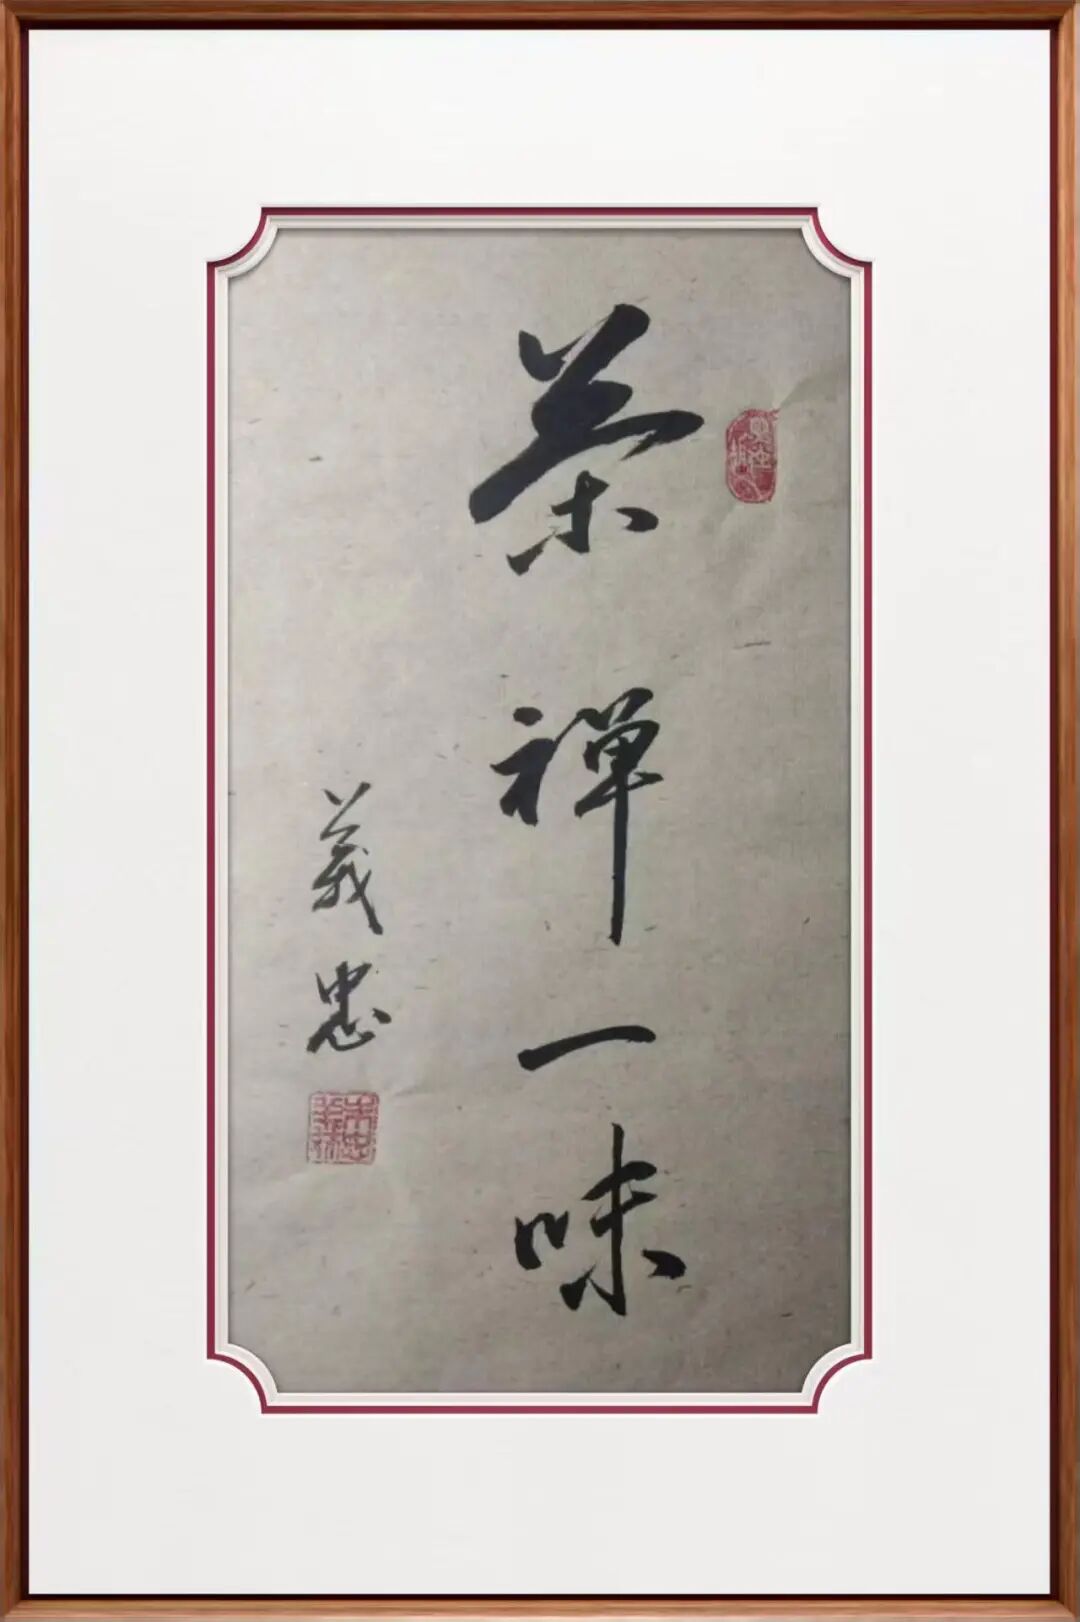 茶禅一味
義忠